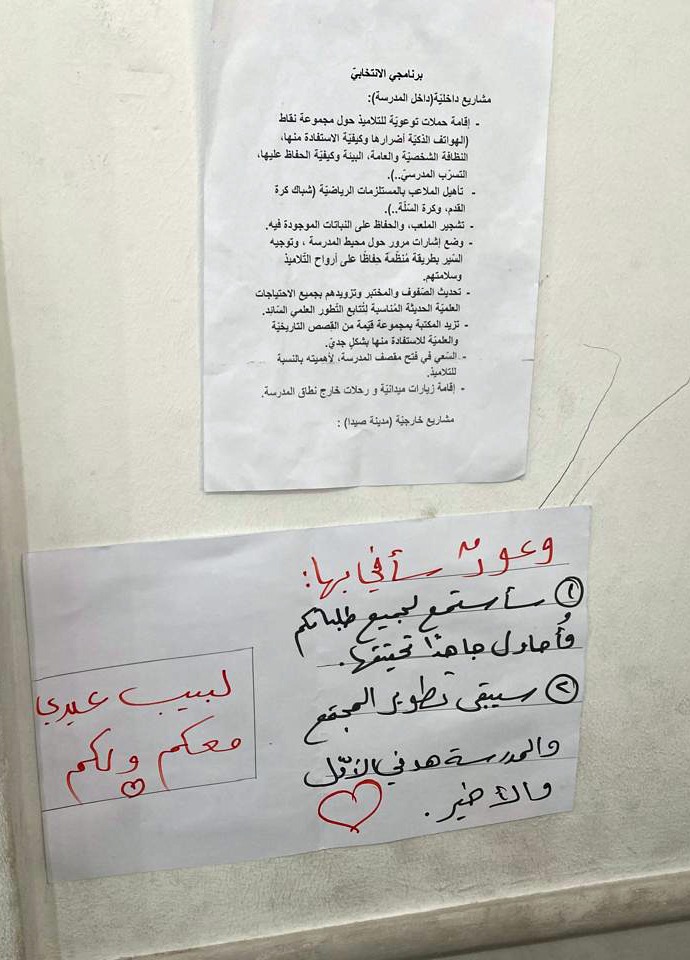 برنامجي الانتخابيّ
مشاريع داخليّة(داخل المدرسة):
- إقامة حملات توعويّة للتلاميذ حول مجموعة نقاط
(الهواتف الذكيّة أضرارها وكيفيّة الاستفادة منها،
النظافة الشخصيّة والعامة، البيئة وكيفيّة الحفاظ عليها،
التسرّب المدرسيّ..).
- تأهيل الملاعب بالمستلزمات الرياضيّة (شباك كرة
القدم، وكرة السّلّة..).
- تشجير الملعب، والحفاظ على النباتات الموجودة فيه.
- وضع إشارات مرور حول محيط المدرسة ، وتوجيه
السّير بطريقة مُنظّمة حفاظًا على أرواح التّلاميذ
وسلامتهم.
- تحديث الصّفوف والمختبر وتزويدهم بجميع الاحتياجات
العلميّة الحديثة المُناسبة لِتُتابع التّطور العلمي السّائد.
- تزيد المكتبة بمجموعة قيّمة من القِصص التاريخيّة
والعلميّة للاستفادة منها بشكلٍ جديّ.
- السّعي في فتح مقصف المدرسة، لأهميته بالنسبة
للتلاميذ.
- إقامة زيارات ميدانيّة و رحلات خارج نطاق المدرسة.
مشاريع خارجيّة (مدينة صيدا) :
وعودٌ سأفي بها:
① سأستمع لجميع طلباتكم
وأُحاول جاهدًا تحقيقها.
② سيبقى تطوير المجتمع
والمدرسة هدفي الأوّل
والأخير.
لبيب عبدي
معكم ولكم